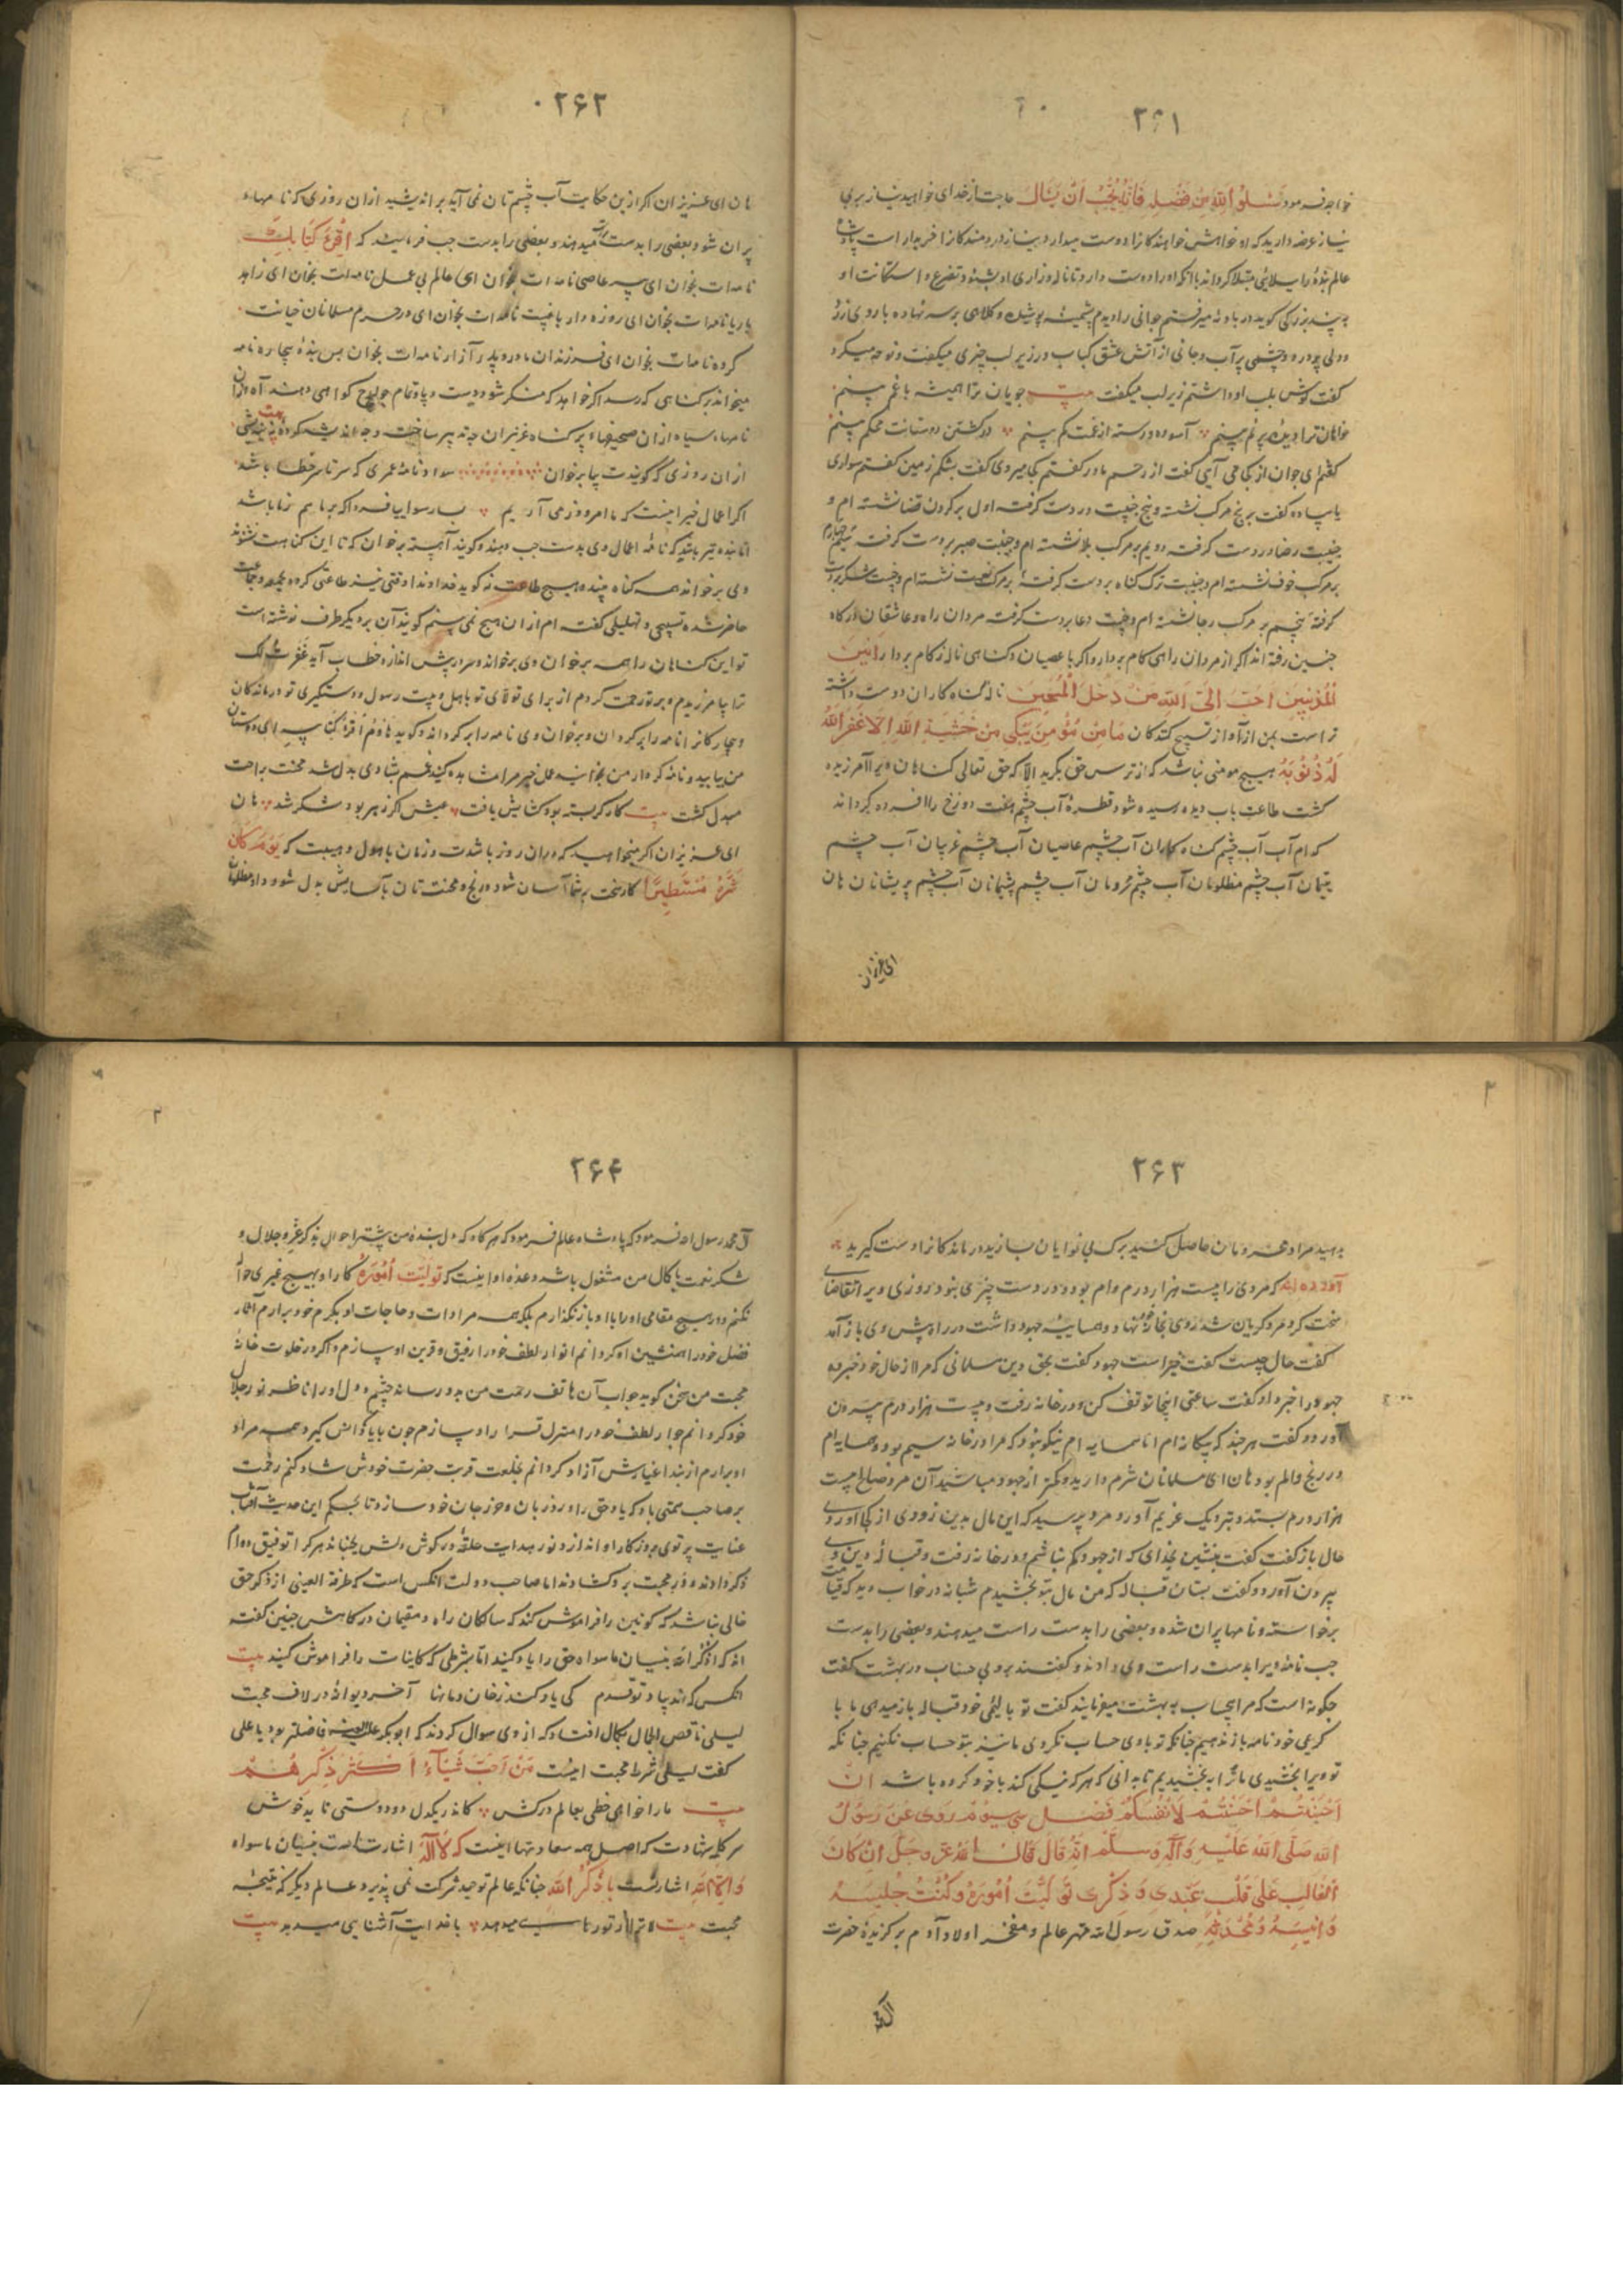 ۲۶۱
خواجه فرمود سَلُوا اللهَ مِن فَضْلِهِ فَاِنَّهُ یُحِبُّ اَنْ یُسْاَلَ حاجت از خدای خواهید نیاز بر وی
نیاز عرضه دارید که او خواهش خواهندکانرا دوست میدارد و نیاز دردمندکانرا خریدار است پادشاه
عالم بندهٔ را ببلائی مبتلا کرداند با آنکه او را دوست دارد تا ناله و زاری او بشنود و تضرع و استکانت او
به بیند بزرکی کوید در بادیه میرفتم جوانی را دیدم پشمینه پوشیده و کلاهی بر سر نهاده با روی زرد
و دلی پر درد و چشمی پر آب و جانی از آتش عشق کباب در زیر لب چیزی میکفت و نوحه میکرد
کفت کوش بلب او داشتم زیر لب میکفت بیت جویان ترا همیشه با غم بینم
خواهان ترا دیده پر نم بینم آسوده و رسته از غمت کم بینم در کشتن دوستانت محکم بینم
کفتم ای جوان از کجا می آیی کفت از رحم مادر کفتم کجا میروی کفت بشکم زمین کفتم سواری
یا پیاده کفت بر پنج مرکب نشسته و پنج جنیبت در دست کرفته اول بر کردن قضا نشسته ام و
جنیبت رضا در دست کرفته دویم بر مرکب بلا نشسته ام و جنیبت صبر بر دست کرفته سیّم چهارم
بر مرکب خوف نشسته ام و جنیبت ترک کناه بر دست کرفته بر مرکب نعمت نشسته ام و جنیبت شکر بر دست
کرفته پنجم بر مرکب رجا نشسته ام و جنیبت دعا بر دست کرفته مردان راه و عاشقان درکاه
چنین رفته اند اکر از مردان راهی کام بردار و اکر با عصیان و کناهی ناله زکام بردار انین
المُذنِبینَ اَحَبُّ اِلَی اللهِ مِن دخل المُسَبِّحینَ نالهٔ کناه کاران دوست داشته
تر است بمن از آواز تسبیح کنندکان مَا مِن مُؤمِنٍ یَبْکِی مِن خَشْیَةِ اللهِ اِلّا غَفَرَ اللهُ
لَهُ ذُنُوبَهُ هیچ مومنی نباشد که از ترس حق بکرید الا که حق تعالی کناهان ویرا آمرزیده
کشت طاعت باب دیده رسیده شود قطرهٔ آب چشم هفت دوزخ را افسرده کرداند
کدام آب آب چشم کناه کاران آب چشم عاصیان آب چشم غریبان آب چشم
یتیمان آب چشم مظلومان آب چشم محرومان آب چشم پشیمانان آب چشم پریشانان هان
ای عزیزان
۲۶۲
هان ای عزیزان اکر ازین حکایت آب چشم تان نمی آید براندیشید از آن روزی که نامهاء
پران شود بعضی را بدست راست میدهند و بعضی را بدست چپ فرمایند که اِقْرَءْ کِتَابَکَ
نامه ات بخوان ای پیر عاصی نامه ات بخوان ای عالم بی عمل نامه ات بخوان ای زاهد
با ریا نامه ات بخوان ای روزه دار با غیبت نامه ات بخوان ای در حرم مسلمانان خیانت
کرده نامه ات بخوان ای فرزندان مادر و پدر آزار نامه ات بخوان پس بندهٔ بیچاره نامه
میخواند بر کناهی که رسد اکر خواهد که منکر شود دست و پا و تمام جوارح کواهی دهند آه از آن
نامهاء سیاه از آن صحیفهاء پر کناه عزیزان چه تدبیر ساخت و چه اندیشه کرده بیت بیندیش
از آن روزی که کویندت بیا برخوان سواد نامهٔ عمری که سرتاسر خطا باشد
اکر اعمال خیر اینست که ما امروز می آریم بسا رسوایها فردا که بر ما هم زما باشد
اما بنده تیره باشد که نامهٔ اعمال وی بدست چپ دهند و کویند آهسته برخوان که تا این کناهت نشنوند
وی برخواند همه کناه بیند و هیچ طاعت نه کوید خداوندا وقتی نیز طاعتی کرده بجمعه و جماعت
حاضر شده تسبیحی و تهلیلی کفته ام از آن هیچ نمی بینم کویند آن بر دیکر طرف نوشته است
تو این کناهان را همه برخوان وی برخواند و سر در پیش اندازد خطاب آید غَفَرْتُ لَکَ
ترا بیامرزیدم و بر تو رحمت کردم از برای تولای تو باهل بیت رسول و دستکیری تو درماندکان
و بیچارکانرا نامه را برکردان و برخوان وی نامه را برکرداند و کوید هَاؤُمُ اقْرَؤُا کِتَابِیَه ای دوستان
من بیایید و نامهٔ کردار من بخوانید عمل خیر مرا مشاهده کنید غم بشادی بدل شد محنت براحت
مبدل کشت بیت کار کر بسته بود کشایش یافت عیش اکر زهر بود شکر شد هان
ای عزیزان اکر میخواهید که در آن روز با شدت و زمان با هول و هیبت که یَوْمَ کَانَ
شَرُّهُ مُسْتَطِیراً کار سخت بر شما آسان شود و رنج و محنت تان باسایش بدل شود داد مظلومان
۲۶۳
بدهید مراد محرومان حاصل کنید برک بی نوایان بسازید درماندکانرا دست کیرید
آورده اند که مردی را بیست هزار درم وام بود و در دست چیزی نبود روزی ویرا تقاضای
سخت کرد مرد کریان شد روی بخانه نهاد و همسایهٔ جهود داشت در راه پیش وی باز آمد
کفت حال چیست کفت خیر است جهود کفت بحق دین مسلمانی که مرا از حال خود خبر ده
جهود را خبر داد کفت ساعتی اینجا توقف کن و در خانه رفت و بیست هزار درم بیرون
آورد و کفت هر چند که بیکانه ام اما همسایه ام نیکو نبود که مرا در خانه سیم بود و همسایه ام
در رنج و الم بود هان ای مسلمانان شرم دارید و کمتر از جهود مباشید آن مرد صالح بیست
هزار درم بستد و بنزدیک غریم آورد مرد پرسید که این مال بدین زودی از کجا آوردی
حال باز کفت کفت بنشین بخدای که از جهود کم نباشم و در خانه رفت و قبالهٔ دین وی
بیرون آورد و کفت بستان قباله که من مال بتو بخشیدم شبانه در خواب دید که قیامت
برخواسته و نامها پران شده و بعضی را بدست راست میدهند و بعضی را بدست
چپ نامهٔ ویرا بدست راست وی دادند و کفتند برو بی حساب در بهشت کفت
چکونه است که مرا بیحساب به بهشت میفرمایند کفت تو با لئیمی خود قباله باز میدهی ما با
کریمی خود نامه باز ندهیم چنانکه تو با وی حساب نکردی ما نیز بتو حساب نکنیم چنانکه
تو ویرا بخشیدی ما ترا به بخشیدیم تا بدانی که هر که نیکی کند با خود کرده باشد اِنْ
اَحْسَنْتُمْ اَحْسَنْتُمْ لِاَنْفُسِکُمْ فصل سی سیوم رَوی عَن رَسُولِ
اللهِ صَلَّی اللهُ عَلَیْهِ وَ آلِهِ وَ سَلَّم اَنَّهُ قَالَ قَالَ اللهُ عَزَّ وَ جَلَّ اِنْ کَانَ
الغَالِبُ عَلَی قَلْبِ عَبْدِی وَ ذِکْرِی تَوَلَّیْتُ اُمُورَهُ وَ کُنْتُ جَلِیسَهُ
وَ اَنِیسَهُ وَ مُحَدِّثَهُ صدق رسول الله مهتر عالم و مفخر اولاد آدم برکزیدهٔ حضرت
۲۶۴
آل محمد رسول الله فرمود که پادشاه عالم فرمود که هر کاه که دل بندهٔ من بیشتر احوال بذکر عز و جلال و
شکر نعمت با کمال من مشغول باشد وعده او اینست که تَوَلَّیْتُ اُمُورَهُ کار او بهیچ غیری حواله
نکنم و در هیچ مقامی او را با او باز نکذارم بلکه همه مرادات و حاجات او بکرم خود برآرم آثار
فضل خود را همنشین او کردانم انوار لطف خود را رفیق و قرین او سازم و اکر در خلوت خانهٔ
محبت من سخن کوید جواب آن هاتف رحمت من بدو رساند چشم و دل او را ناظر نور جلال
خود کردانم جوار لطف خود را منزل قرار او سازم چون با یاد کار انس کیرد همه مراد
او برآرم از بند اغیارش آزاد کردانم بخلعت قربت حضرت خودش شاد کنم رحمت
بر صاحب همتی باد که یاد حق را ورد زبان و حرز جان خود سازد تا بحکم این حدیث آفتاب
عنایت پرتوی بروزکار او اندازد و نور هدایت حلقهٔ در کوش دلش بجنباند هر کرا توفیق دوام
ذکر دادند و در محبت برو کشادند اما صاحب دولت آنکس است که طرفة العینی از ذکر حق
خالی نباشد که کونین را فراموش کند که سالکان راه و مقیمان درکاهش چنین کفته
اند که اذکر الله بنسیان ما سواه حق را یاد کنید اما بشرطی که کاینات را فراموش کنید بیت
آنکس که نهد بیاد تو قدم کی یاد کند ز خان و مانها آخر دیوانهٔ در لاف محبت
لیلی ناقص الحال بکمال افتاد که از وی سوال کردند که ابوبکر فاضلتر بود یا علی
کفت لیلی شرط محبت اینست مَنْ اَحَبَّ شَیْئاً اَکْثَرَ ذِکْرَهُ
بیت ما را خواهی خطی بعالم در کش کاندر یکدل دو دوستی ناید خوش
سر کلمه شهادت که اصل همه سعادتها اینست که لَا اِلٰهَ اشارتست بنسیان ما سواه
وَ اِلَّا اللهُ اشارتست باذکر الله چنانکه عالم توحید شرکت نمی پذیرد و عالم دیکر که نتیجهٔ
محبت بیت میدهد با خدایت آشنایی میدهد بیت